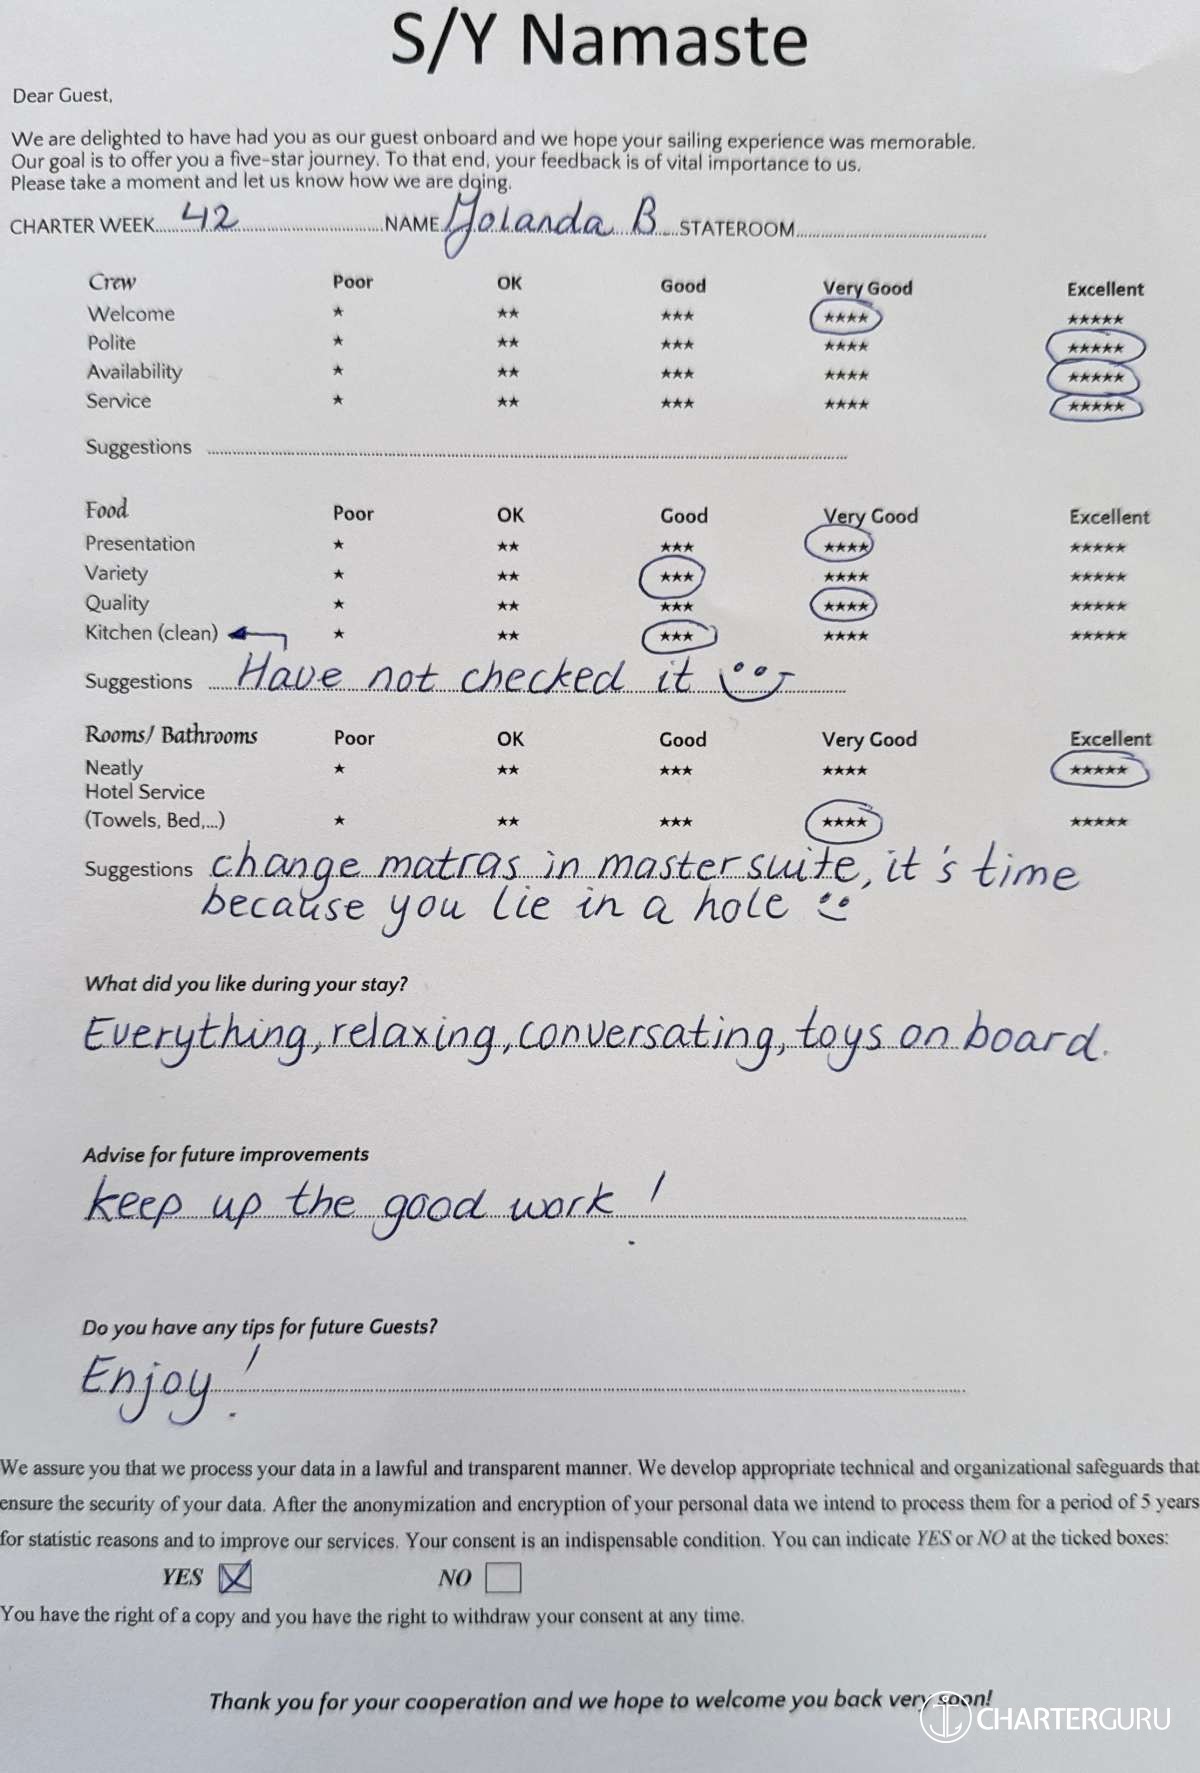 S/Y Namaste
Dear Guest,
We are delighted to have had you as our guest onboard and we hope your sailing experience was memorable.
Our goal is to offer you a five-star journey. To that end, your feedback is of vital importance to us.
Please take a moment and let us know how we are doing.
CHARTER WEEK 42 NAME Yolanda B STATEROOM
Crew Poor OK Good Very Good Excellent
Welcome ★ ★★ ★★★ ★★★★ ★★★★★
Polite ★ ★★ ★★★ ★★★★ ★★★★★
Availability ★ ★★ ★★★ ★★★★ ★★★★★
Service ★ ★★ ★★★ ★★★★ ★★★★★
Suggestions
Food Poor OK Good Very Good Excellent
Presentation ★ ★★ ★★★ ★★★★ ★★★★★
Variety ★ ★★ ★★★ ★★★★ ★★★★★
Quality ★ ★★ ★★★ ★★★★ ★★★★★
Kitchen (clean) ★ ★★ ★★★ ★★★★ ★★★★★
Suggestions Have not checked it
Rooms/ Bathrooms Poor OK Good Very Good Excellent
Neatly ★ ★★ ★★★ ★★★★ ★★★★★
Hotel Service
(Towels, Bed,...) ★ ★★ ★★★ ★★★★ ★★★★★
Suggestions change matras in master suite, it's time
because you lie in a hole
What did you like during your stay?
Everything, relaxing, conversating, toys on board.
Advise for future improvements
keep up the good work!
Do you have any tips for future Guests?
Enjoy!
We assure you that we process your data in a lawful and transparent manner. We develop appropriate technical and organizational safeguards that
ensure the security of your data. After the anonymization and encryption of your personal data we intend to process them for a period of 5 years
for statistic reasons and to improve our services. Your consent is an indispensable condition. You can indicate YES or NO at the ticked boxes:
YES NO
You have the right of a copy and you have the right to withdraw your consent at any time.
Thank you for your cooperation and we hope to welcome you back very soon!
CHARTERGURU